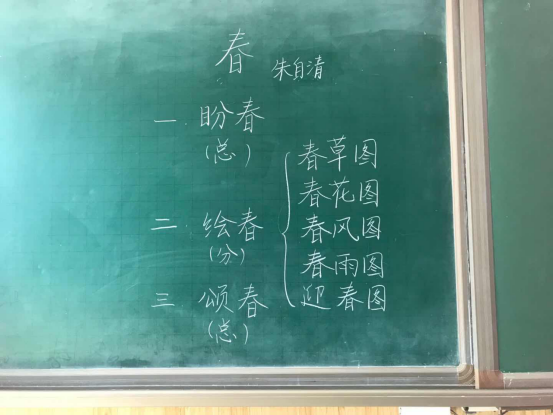 春 朱自清
一 盼春
(总)
春草图
春花图
二 绘春 春风图
(分)
春雨图
三 颂春 迎春图
(总)